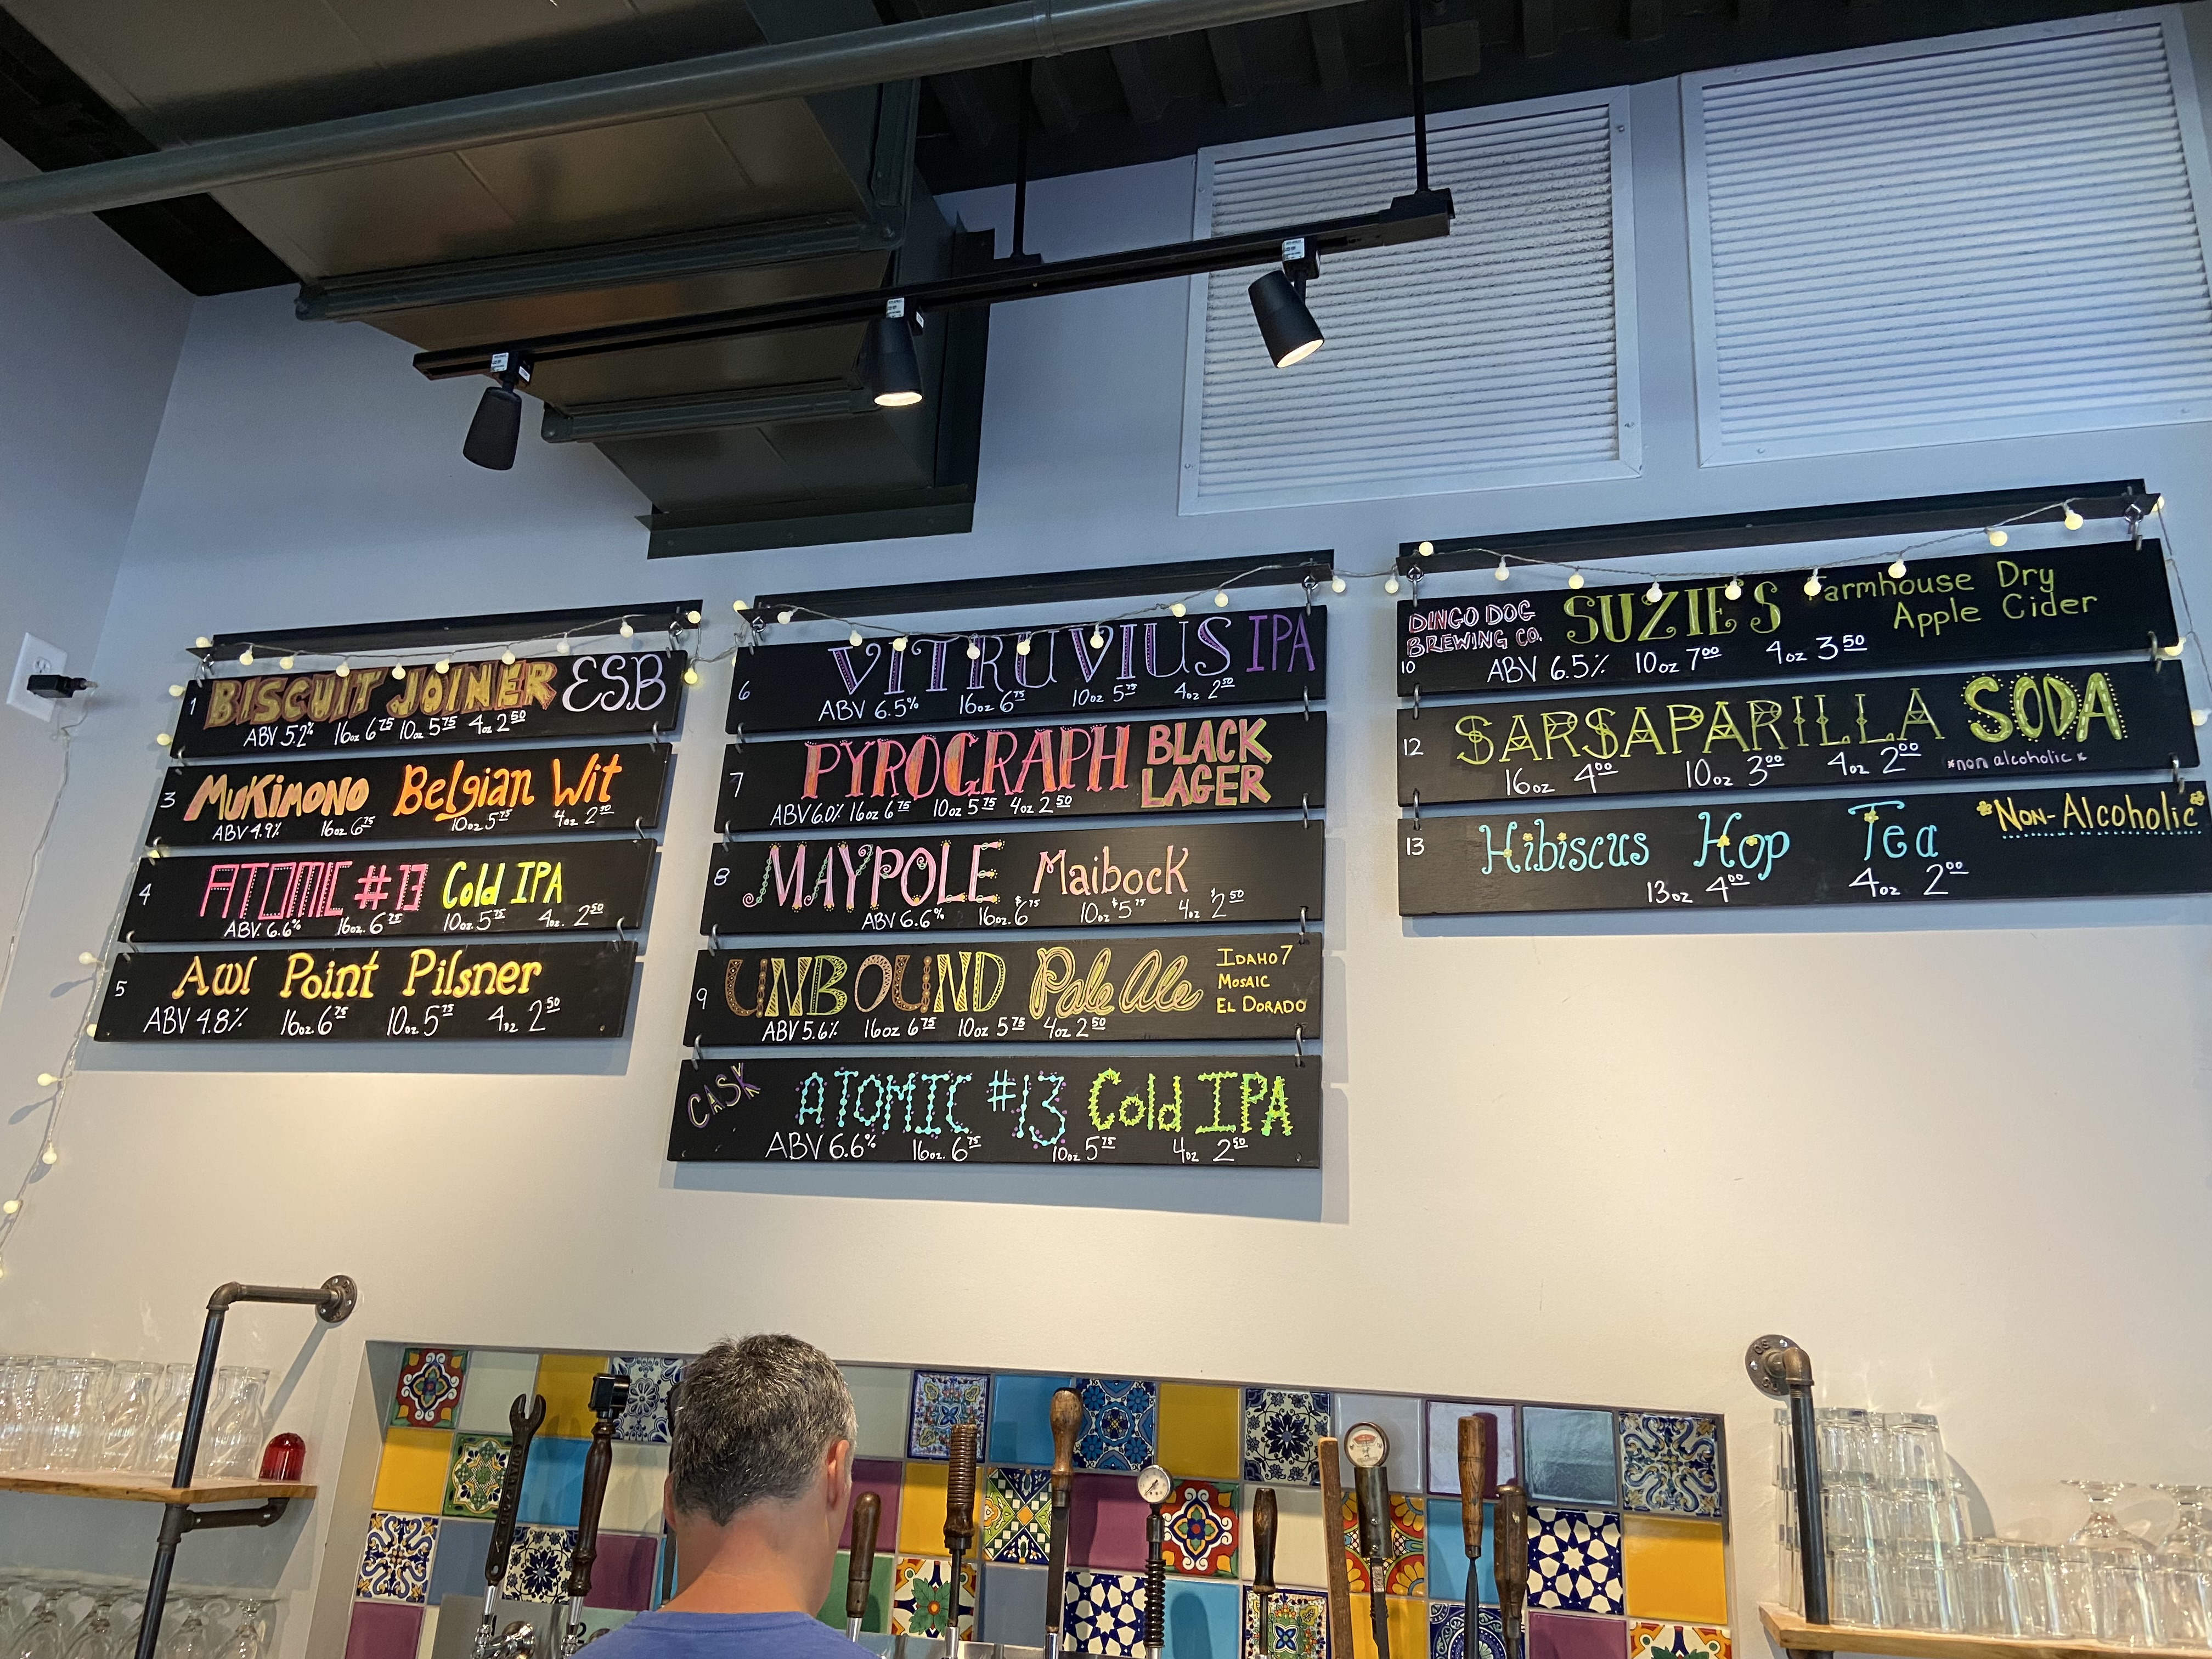 1 BISCUIT JOINER ESB
ABV 5.2% 16oz 6.75 10oz 5.75 4oz 2.50
3 MUKIMONO Belgian Wit
ABV 4.9% 16oz 6.75 10oz 5.75 4oz 2.50
4 ATOMIC #13 Cold IPA
ABV. 6.6% 16oz. 6.75 10oz. 5.75 4oz. 2.50
5 Awl Point Pilsner
ABV 4.8% 16oz. 6.75 10oz. 5.75 4oz 2.50
6 VITRUVIUS IPA
ABV 6.5% 16oz 6.75 10oz 5.75 4oz 2.50
7 PYROGRAPH BLACK LAGER
ABV 6.0% 16oz 6.75 10oz 5.75 4oz 2.50
8 MAYPOLE Maibock
ABV 6.6% 16oz. $6.75 10oz $5.75 4oz $2.50
9 UNBOUND Pale Ale
IDAHO 7
MOSAIC
EL DORADO
ABV 5.6% 16oz 6.75 10oz 5.75 4oz 2.50
CASK ATOMIC #13 Cold IPA
ABV 6.6% 16oz. 6.75 10oz 5.75 4oz 2.50
DINGO DOG
BREWING CO.
SUZIE'S Farmhouse Dry
Apple Cider
10 ABV 6.5% 10oz 7.00 4oz 3.50
12 SARSAPARILLA SODA
16oz 4.00 10oz 3.00 4oz 2.00 *non alcoholic*
13 Hibiscus Hop Tea *Non-Alcoholic*
13oz 4.00 4oz 2.00